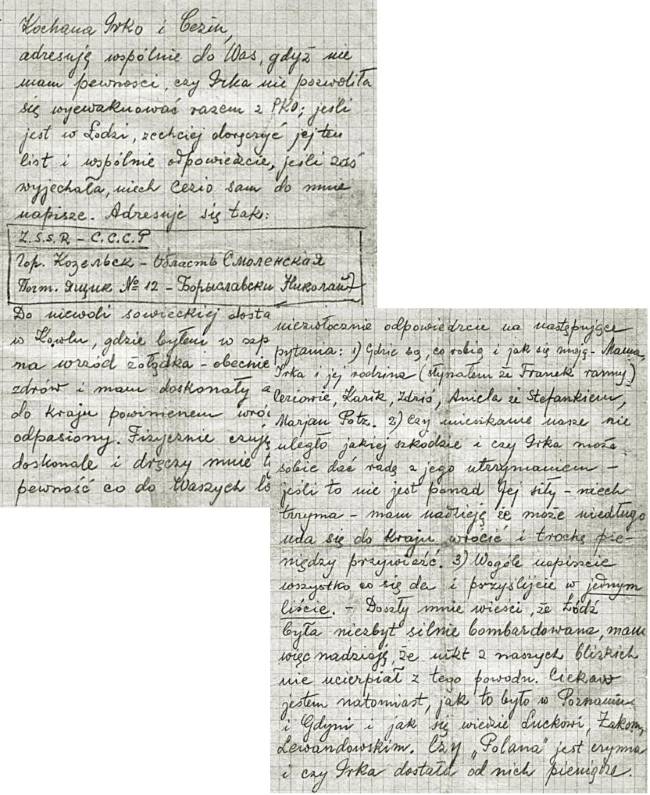 Kochana Irko i Ceziu,
adresuję wspólnie do Was, gdyż nie
mam pewności, czy Irka nie pozwoliła
się wyewakuować razem z PKO; jeśli
jest w Łodzi, zechciej doręczyć jej ten
list i wspólnie odpowiedzcie, jeśli zaś
wyjechała, niech Cezio sam do mnie
napisze. Adresuje się tak:
Z.S.S.R - C.C.C.P
Гор. Козельск - Область Смоленская
Почт. Ящик № 12 - Бориславски Николай
Do niewoli sowieckiej dosta
w Kowlu, gdzie byłem w szp
na wrzód żołądka - obecnie
zdrów i mam doskonały a
do kraju powinienem wróc
odpasiony. Fizycznie czuję
doskonale i dręczy mnie t
pewność co do Waszych lo
niezwłocznie odpowiedzcie na następujące
pytania: 1) Gdzie są, co robią i jak się mają - Mama,
Irka i jej rodzina (słyszałem że Franek ranny)
Ceziowie, Karik, Zdzisio, Aniela ze Stefankiem,
Marjan Potz. 2) Czy mieszkanie nasze nie
uległo jakiej szkodzie i czy Irka może
sobie dać radę z jego utrzymaniem -
jeśli to nie jest ponad Jej siły - niech
trzyma - mam nadzieję że może niedługo
uda się do kraju wrócić i trochę pie-
niędzy przywieźć. 3) Wogóle napiszcie
wszystko co się da i przyślijcie w jednym
liście. - Doszły mnie wieści, że Łódź
była niezbyt silnie bombardowana, mam
więc nadzieję, że nikt z naszych bliskich
nie ucierpiał z tego powodu. Ciekaw
jestem natomiast, jak to było w Poznaniu
i Gdyni i jak się wiedzie Luckowi, Zakom,
Lewandowskim. Czy "Polana" jest czynna
i czy Irka dostała od nich pieniądze.